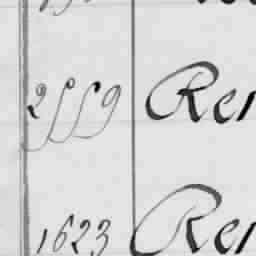 2559 Ren
1623 Ren